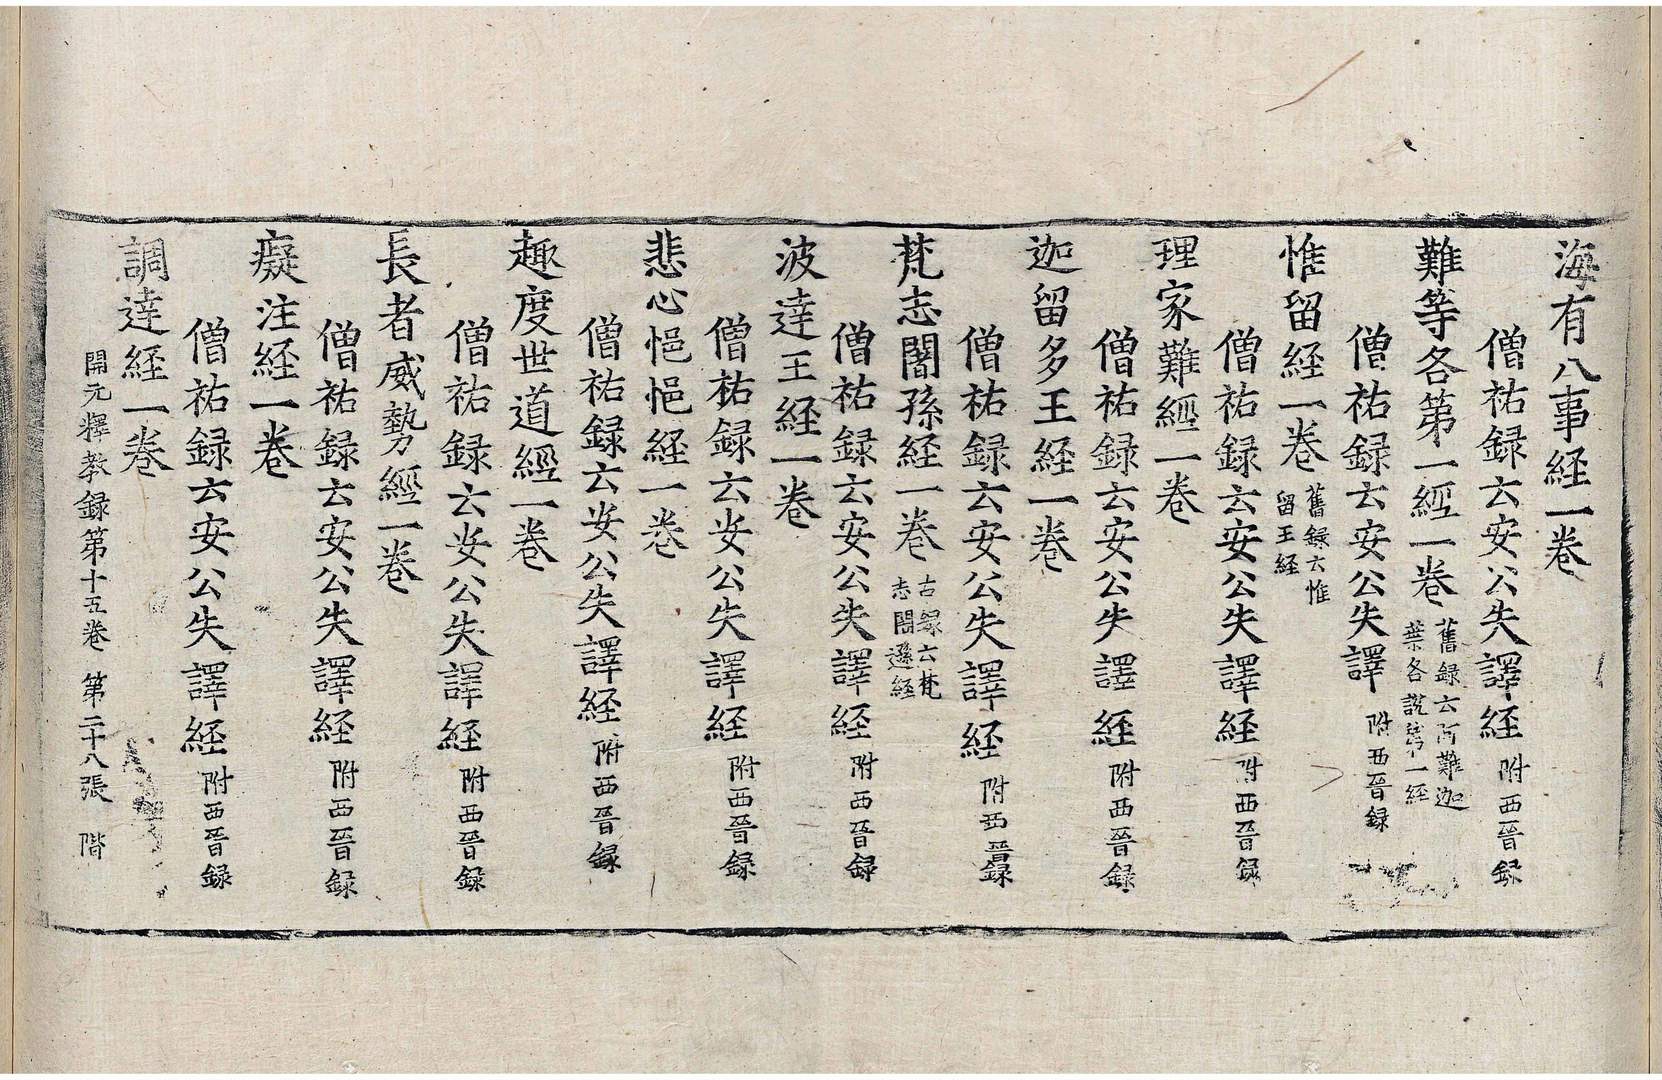 海有八事経一卷
僧祐録云安公失譯経附西晉録
難等各第一經一卷舊録云阿難迦葉各說第一経
僧祐録云安公失譯附西晉録
惟留経一卷舊録云惟留王経
僧祐録云安公失譯経附西晉録
理家難經一卷
僧祐録云安公失譯経附西晉録
迦留多王経一卷
僧祐録云安公失譯経附西晉録
梵志闍孫経一卷古録云梵志闍遜経
僧祐録云安公失譯経附西晉録
波達王経一卷
僧祐録云安公失譯経附西晉録
悲心悒悒経一卷
僧祐録云安公失譯経附西晉録
趣度世道經一卷
僧祐録云安公失譯経附西晉録
長者威勢經一卷
僧祐録云安公失譯経附西晉録
癡注経一卷
僧祐録云安公失譯経附西晉録
調達経一卷
開元釋教録第十五卷 第二十八張 階